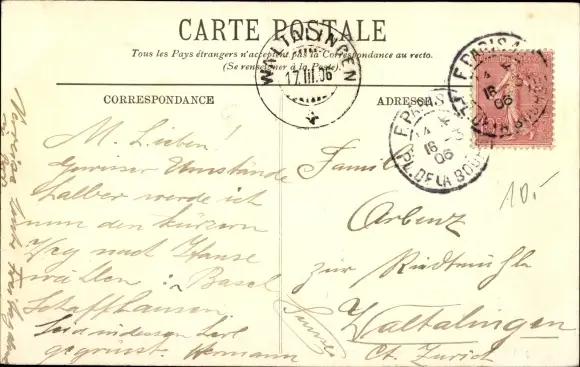 CARTE POSTALE
Tous les Pays étrangers n'acceptent pas la Correspondance au recto.
(Se renseigner à la Poste).
WALTALINGEN
17.III.06
PARIS
16
06
PARIS
16 3
06
PL. DE LA BOURSE
CORRESPONDANCE
ADRESSE
M. Lieben!
Gewisser Umstände
halber werde ich
nun den kürzern
Weg nach Hause
wählen: Basel
Schaffhausen
Seid indessen herzl
gegrüsst. Hermann
Familie
Arbenz
zur Riedtmühle
Waltalingen
Ct. Zürich
10.-